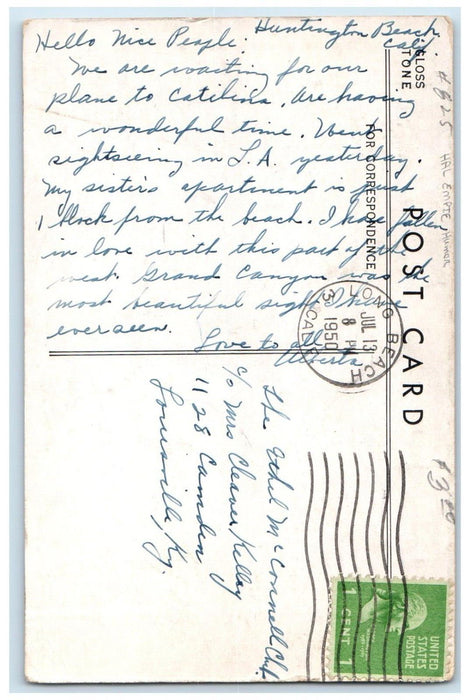 Huntington Beach,
Calif.
Hello Nice People:
We are waiting for our
plane to Catilina. Are having
a wonderful time. Went
sightseeing in L.A. yesterday.
My sister's apartment is just
1 block from the beach. I have fallen
in love with this part of the
west. Grand Canyon was the
most beautiful sight I have
ever seen.
Love to all
Alberta
GLOSS
TONE
FOR CORRESPONDENCE
POST CARD
#825
HAL EMPIE HUMOR
LONG BEACH
JUL 13
8 PM
1950
CALIF.
3
The Ethel McConnell Chpt.
c/o Mrs Cleaver Kelley
1128 Camden
Louisville, Ky.
$3.00
UNITED
STATES
POSTAGE
1 CENT 1